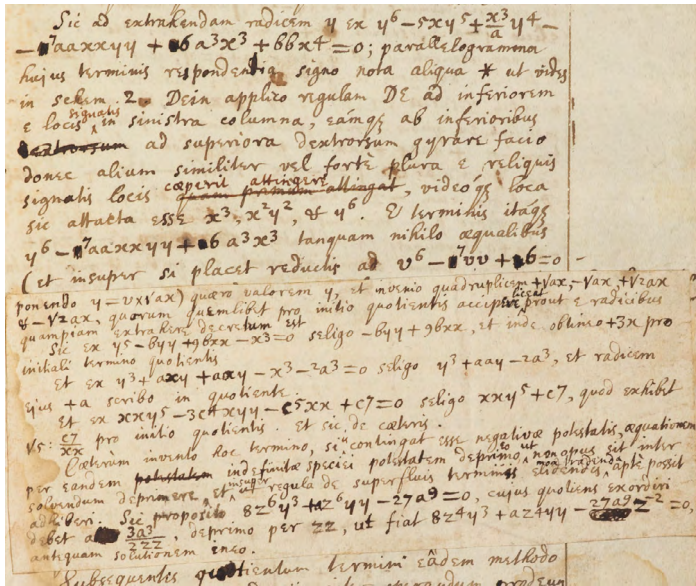 Sic ad extrahendam radicem y ex y⁶ − 5xy⁵ + x³/a y⁴ −
− 7aaxxyy + 6a³x³ + bbx⁴ = 0; parallelogramma
hujus terminis respondentia signo nota aliqua * ut vides
in schem. 2. Dein applico regulam DE ad inferiorem
e locis signatis in sinistra columna, eamqe ab inferioribus
dextrorsum ad superiora dextrorsum gyrare facio
donec alium similiter vel fortè plura e reliquis
signatis locis cæperit attingere quam primum attingat, videóqe loca
sic attacta esse x³, x²y², & y⁶. E terminis itáqe
y⁶ − 7aaxxyy + 6a³x³ tanquam nihilo æqualibus
(et insuper si placet reductis ad v⁶ − 7vv + 6 = 0 -
ponendo y = v×√ax) quæro valorem y, et invenio quadruplicem +√ax, −√ax, +√2ax
& −√2ax, quorum quemlibet pro initio quotientis accipere licet prout e radicibus
quampiam extrahere decretum est
Sic ex y⁵ − byy + 9bxx − x³ = 0 seligo −byy + 9bxx, et inde obtineo +3x pro
initiali termino quotientis
Et ex y³ + axy + aay − x³ − 2a³ = 0 seligo y³ + aay − 2a³, et radicem
ejus +a scribo in quotiente.
Et ex xxy⁵ − 3c⁴xyy − c⁵xx + c⁷ = 0 seligo xxy⁵ + c⁷, quod exhibet
√5: c⁷/xx pro initio quotientis. Et sic de cæteris.
Cæterum invento hoc termino, si contingat esse negativæ potestatis, æquationem
per eandem potestatem indefinitæ speciei potestatem deprimo ut non opus sit inter
solvendum deprimere, et insuper ut regula de superfluis terminis elidendis mox tradenda aptè possit
adhiberi. Sic proposito 8z⁶y³ + az⁶yy − 27a⁹ = 0, cujus quotiens exordiri
debet a 3a³/2zz, deprimo per zz, ut fiat 8z⁴y³ + az⁴yy − 27a⁹z⁻² = 0,
antequam solutionem ineo.
Subsequentes quotientum termini eâdem methodo